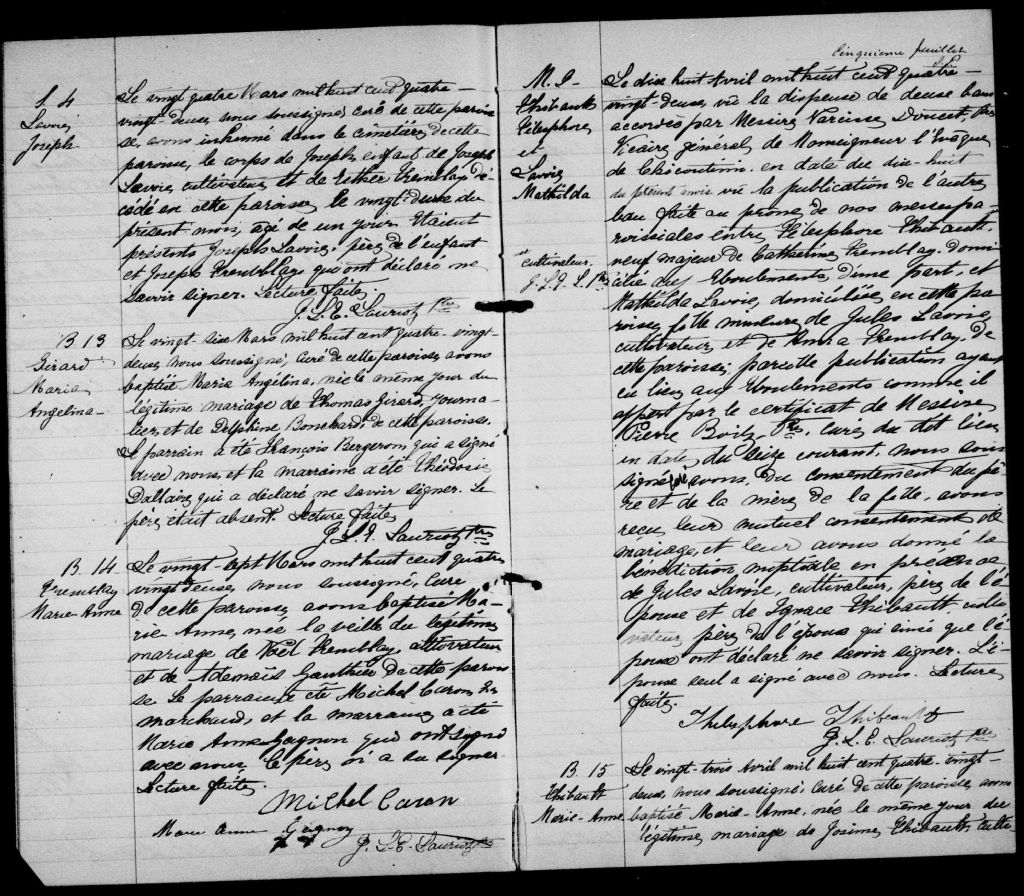 S. 4
Lavoie
Joseph
Le vingt quatre Mars mil huit cent quatre-
vingt-deux, nous soussigné, curé de cette parois
se, avons inhumé dans le cimetière de cette
paroisse, le corps de Joseph, enfant de Joseph
Lavoie, cultivateur et de Esther Tremblay, dé
cédé en cette paroisse le vingt-deux du
présent mois, agé de un jour. Etaient
présents Joseph Lavoie, père de l'enfant
et Joseph Tremblay qui ont déclaré ne
savoir signer. Lecture faite.
J. L. E. Lauriot Ptre
B 13
Girard
Maria
Angelina
Le vingt-six Mars mil huit cent quatre-vingt-
deux, nous soussigné, curé de cette paroisse, avons
baptisé Maria Angélina, née le même jour du
légitime mariage de Thomas Girard, journa-
lier, et de Delphine Bouchard, de cette paroisse.
Le parrain a été François Bergeron, qui a signé
avec nous, et la marraine a été Théodosie
Dallaire, qui a déclaré ne savoir signer. Le
père était absent. Lecture faite.
J. L. E. Lauriot Ptre
B. 14
Tremblay
Marie-Anne
Le vingt-sept Mars mil huit cent quatre
vingt deux, nous soussigné, curé
de cette paroisse, avons baptisé Ma-
rie Anne, née la veille du légitime
mariage de Noël Tremblay, cultivateur
et de Adamais Gauthier de cette parois
se. Le parrain a été Michel Caron
marchand, et la marraine a été
Marie Anne Gagnon qui ont signé
avec nous, le père n'a su signer.
Lecture faite.
Michel Caron
Marie Anne Gagnon
J. L. E. Lauriot Ptre
Cinquième feuillet
M. I
Thibault
Télesphore
et
Lavoie
Mathilda
cultivateur.
J. L. E. L. Ptre
Le dix huit Avril mil huit cent quatre-
vingt-deux, vu la dispense de deux bans
accordés par Messire Narcisse Doucet, Ptre
Vicaire général de Monseigneur l'Evêque
de Chicoutimi en date du dix-huit
du présent mois vu la publication de l'autre
ban faite au prone de nos messes pa
roissiales entre Télesphore Thibault
veuf majeur de Catherine Tremblay, domi
cilié aux Eboulements, d'une part, et
Mathilda Lavoie, domiciliée en cette pa
roisse, fille mineure de Jules Lavoie,
cultivateur, et de Anna Tremblay, de
cette paroisse; pareille publication ayant
eu lieu aux Eboulements comme il
appert par le certificat de Messire
Pierre Boily Ptre. Curé du dit lieu
en date du seize courant, nous sous
signé avons, du consentement du pè
re et de la mère de la fille, avons
reçu leur mutuel consentement de
mariage, et leur avons donné la
bénédiction nuptiale en présence
de Jules Lavoie, cultivateur, père de l'é
pouse et de Ignace Thibault culti
vateur, père de l'époux qui ainsi que l'é
pouse ont déclaré ne savoir signer. L'é-
poux seul a signé avec nous. Lecture
faite.
Thelesphore Thibeault
J. L. E. Lauriot Ptre
B. 15
Thibault
Marie-Anne
Le vingt-trois Avril mil huit cent quatre-vingt-
deux, nous soussigné, Curé de cette paroisse, avons
baptisé Marie-Anne, née le même jour du
légitime mariage de Josime Thibault, culti-